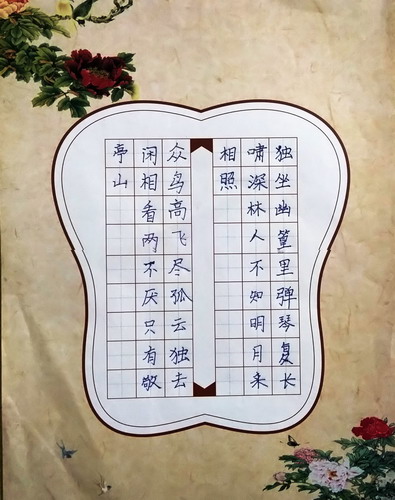 独坐幽篁里弹琴复长
啸深林人不如明月来
相照
众鸟高飞尽孤云独去
闲相看两不厌只有敬
亭山